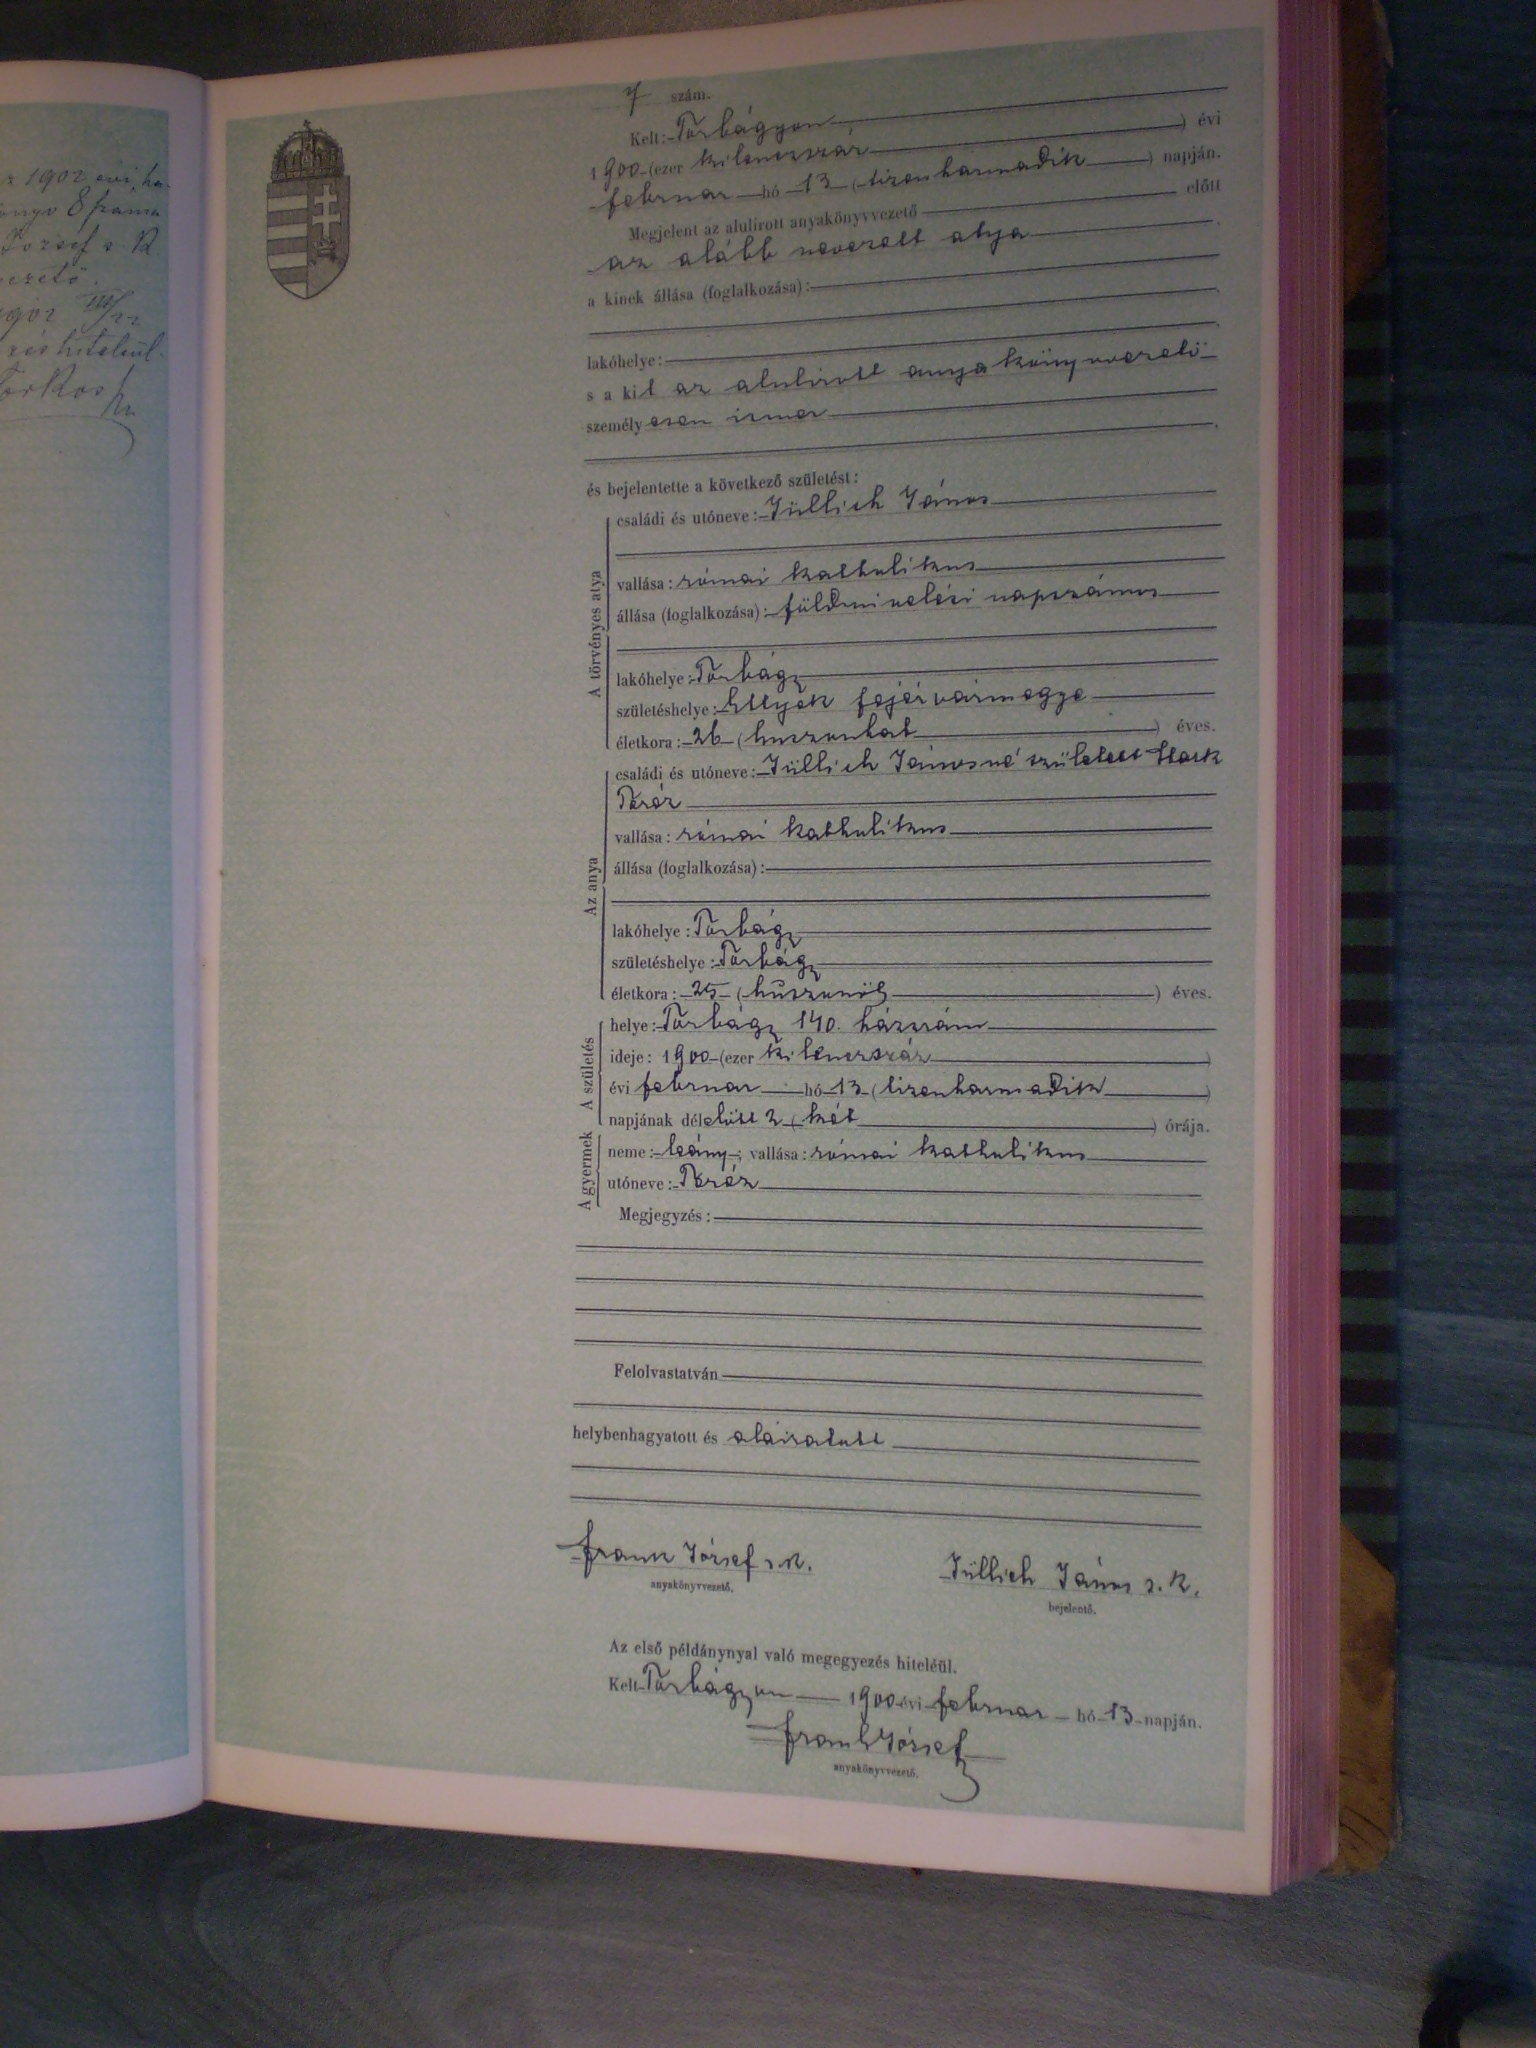 1902 évi
8 szama
József s. k.
7 szám.
Kelt: Torbágyon
1900 (ezer kilenczszáz) évi
februar hó 13 (tizenharmadik) napján.
Megjelent az alulirott anyakönyvvezető előtt
az alább nevezett atya
a kinek állása (foglalkozása):
lakóhelye:
s a kit az alulirott anyakönyvvezető
személyesen ismer
és bejelentette a következő születést:
A törvényes atya
családi és utóneve: Jüllich János
vallása: római katholikus
állása (foglalkozása): földmivelési napszámos
lakóhelye: Torbágy
születéshelye: Ettyek fejérvármegye
életkora: 26 (huszonhat) éves.
Az anya
családi és utóneve: Jüllich Jánosné született Stark
Teréz
vallása: római katholikus
állása (foglalkozása):
lakóhelye: Torbágy
születéshelye: Torbágy
életkora: 25 (huszonöt) éves.
A születés
helye: Torbágy 140. házszám
ideje: 1900 (ezer kilenczszáz)
évi februar hó 13 (tizenharmadik)
napjának délelőtt 2 (két) órája.
A gyermek
neme: leány; vallása: római katholikus
utóneve: Teréz
Megjegyzés:
Felolvastatván
helybenhagyatott és aláiratott
Frank József s. k. Jüllich János s. k.
anyakönyvvezető. bejelentő.
Az első példánynyal való megegyezés hiteléül.
Kelt Torbágyon 1900 évi februar hó 13 napján.
Frank József
anyakönyvvezető.